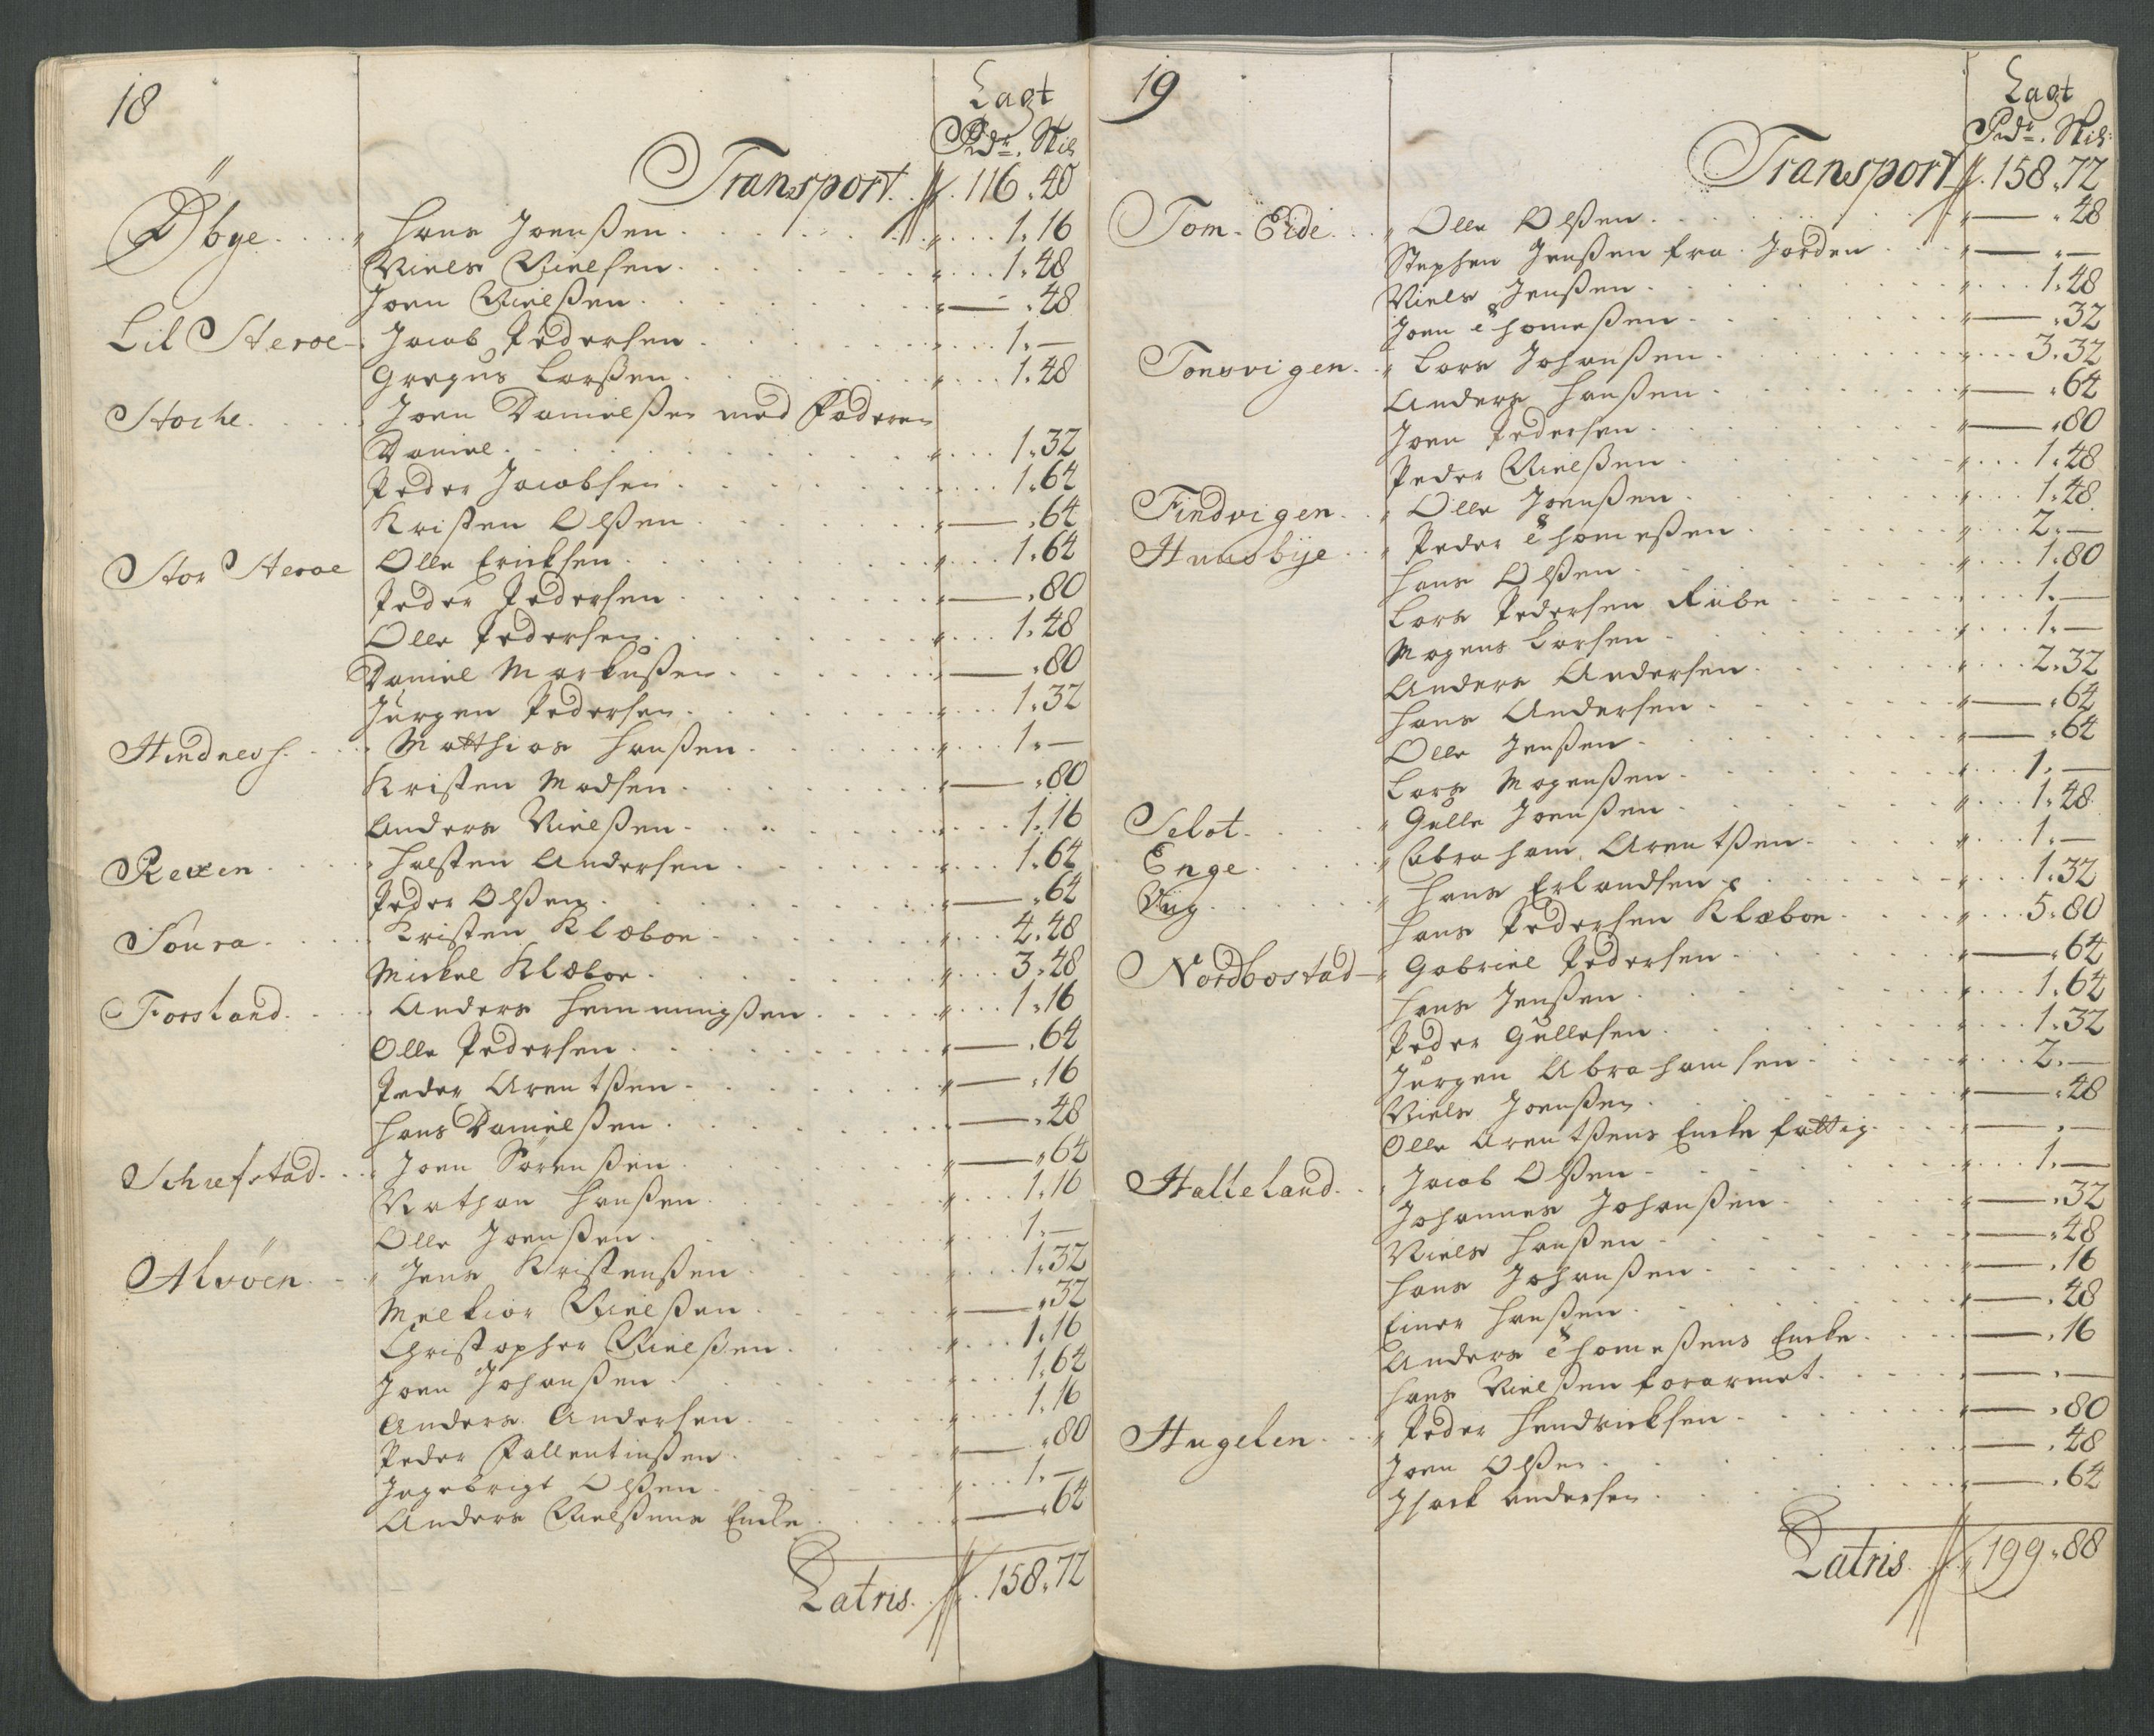 18
Lagt
Rdr. Skil
Transport 116.40
Öbye Hans Joenßen 1.16
Niels Nielsen 1.48
Joen Nielßen — .48
Lil Steroe Jacob Pedersen 1.—
Gregus Larßen 1.48
Stoche Joen Danielßen med Faderen
Daniel 1.32
Peder Jacobsen 1.64
Kristen Olßen — .64
Stor Steroe Olle Ericksen 1.64
Peder Pedersen — .80
Olle Pedersen 1.48
Daniel Markußen — .80
Jürgen Pedersen 1.32
Hindnesh Matthias Hanßen 1.—
Kristen Madsen — .80
Anders Nielßen 1.16
Reven Halsten Andersen 1.64
Peder Olßen — .64
Soura Kristen Klæboe 4.48
Mickel Klæboe 3.48
Forsland Anders Hemmingßen 1.16
Olle Pedersen — .64
Peder Arentßen — .16
Hans Danielßen — .48
Schiefstad Joen Sörenßen — .64
Nathan Hanßen 1.16
Olle Joenßen 1.—
Alvöen Jens Kristenßen 1.32
Melkior Nielßen — .32
Christopher Nielßen 1.16
Joen Johanßen 1.64
Anders Andersen 1.16
Peder Fallentinßen — .80
Ingebrigt Olßen 1.—
Anders Nielßens Encke — .64
Latris 158.72
19
Lagt
Rdr. Skil:
Transport 158.72
Tom-Eide Olle Olßen — .48
Stephen Jenßen fra Jorden — . —
Niels Jenßen 1.48
Joen Thomeßen — .32
Tonsvigen Lars Johanßen 3.32
Anders Hanßen — .64
Joen Pedersen — .80
Peder Nielßen 1.48
Findvigen Olle Joenßen 1.48
Huusbÿe Peder Thomeßen 2.—
Hans Olßen 1.80
Lars Pedersen Rübe 1.—
Mogens Larsen 1.—
Anders Andersen 2.32
Hans Andersen — .64
Olle Jenßen — .64
Lars Mogenßen 1.—
Selot Gulle Joenßen 1.48
Enge Abraham Arentßen 1.—
Aug Hans Erlandsen 1.32
Hans Pedersen Klæboe 5.80
Nordbostad Gabriel Pedersen — .64
Hans Jenßen 1.64
Peder Gullesen 1.32
Jürgen Abrahamsen 2.—
Niels Joenßen — .48
Olle Arentßens Encke fattig — . —
Halleland Jacob Olßen 1.—
Johannes Johanßen — .32
Niels Hanßen — .48
Hans Johanßen — .16
Einer Hanßen — .48
Anders Thomeßens Encke — .16
Hans Nielßen forarmet — . —
Hugelen Peder Hendricksen — .80
Joen Olßen — .48
Isack Andersen — .64
Latris 199.88